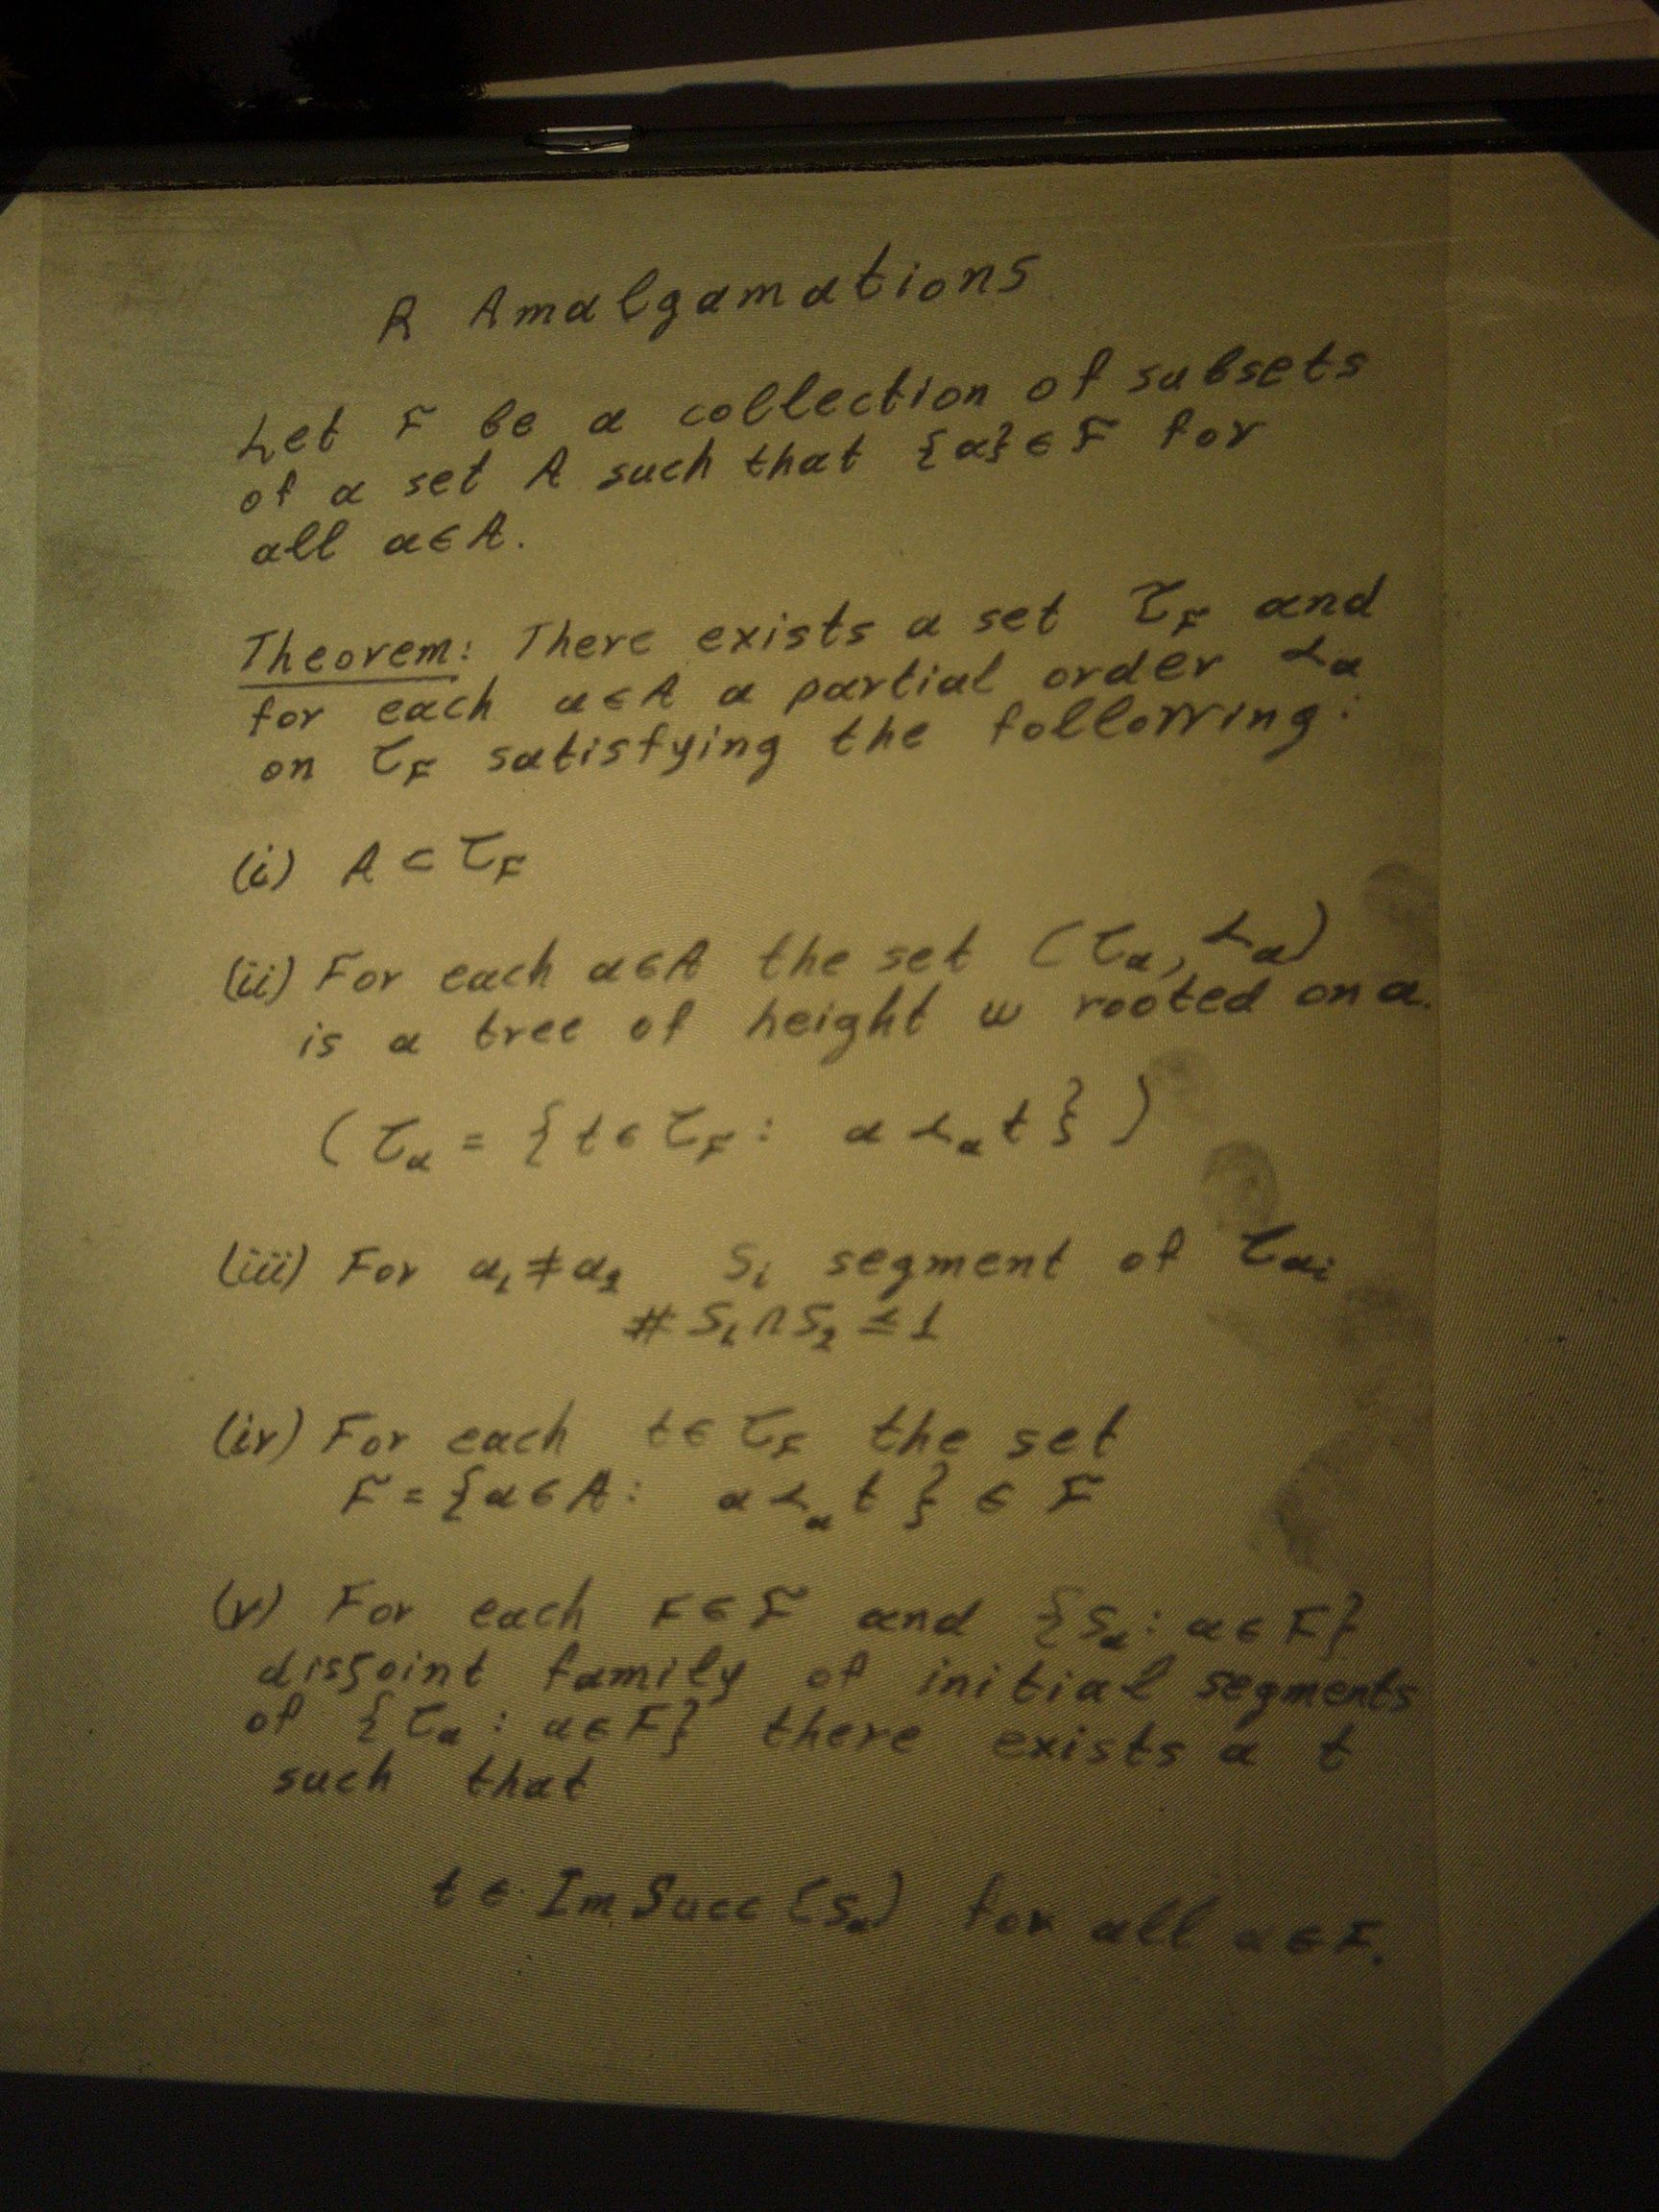 R Amalgamations
Let F be a collection of subsets
of a set A such that {a} ∈ F for
all a ∈ A.
Theorem: There exists a set τ_F and
for each a ∈ A a partial order ≺_a
on τ_F satisfying the following:
(i) A ⊂ τ_F
(ii) For each a ∈ A the set (τ_a, ≺_a)
is a tree of height ω rooted on a.
(τ_a = {t ∈ τ_F : a ≺_a t})
(iii) For a_1 ≠ a_2 S_i segment of τ_{a_i}
# S_1 ∩ S_2 ≤ 1
(iv) For each t ∈ τ_F the set
F = {a ∈ A : a ≺_a t} ∈ F
(v) For each F ∈ F and {S_a : a ∈ F}
disjoint family of initial segments
of {τ_a : a ∈ F} there exists a t
such that
t ∈ Im Succ (S_a) for all a ∈ F.